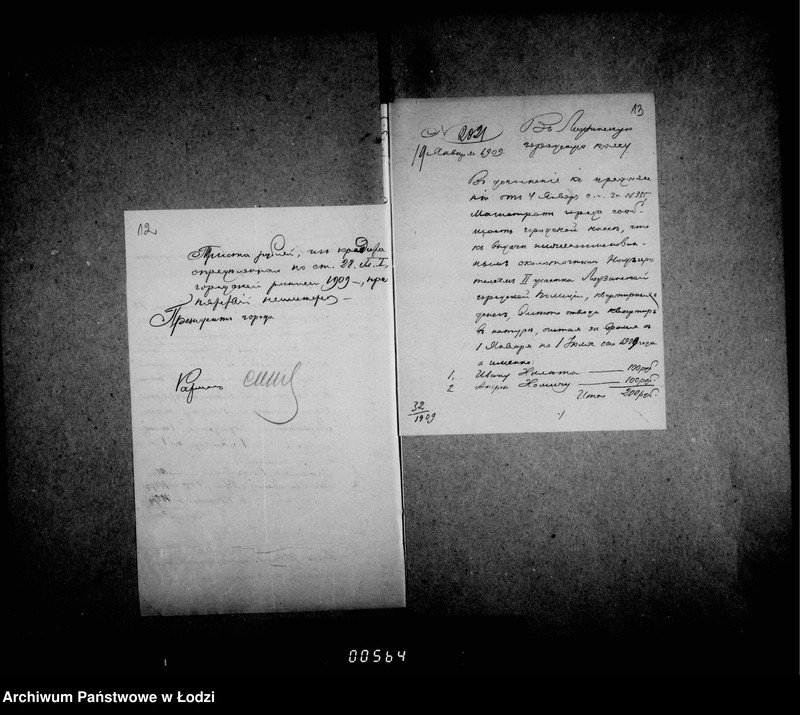 12
Триста рублей, изъ кредита
определенная по ст. 28. Л. I,
городской росписи 1909
Президентъ города
13
№ 2021
19 Января 1909.
Въ Лодзинскую
городскую кассу
Въ дополненіе къ
отъ 4 Января с.г. за №
Магистратъ города сооб-
щаетъ городской кассѣ, что
къ выдачѣ
околоточнымъ Надзира-
телямъ II участка Лодзинской
городской Полиціи, квартирныхъ
денегъ, вмѣсто отвода квартиръ
въ натурѣ, считая за время съ
1 Января по 1 Іюля сего 1909 года
а именно:
1, Ивану 100 руб
2 100 руб.
Итого 200 руб.
32
1909
00564
Archiwum Państwowe w Łodzi